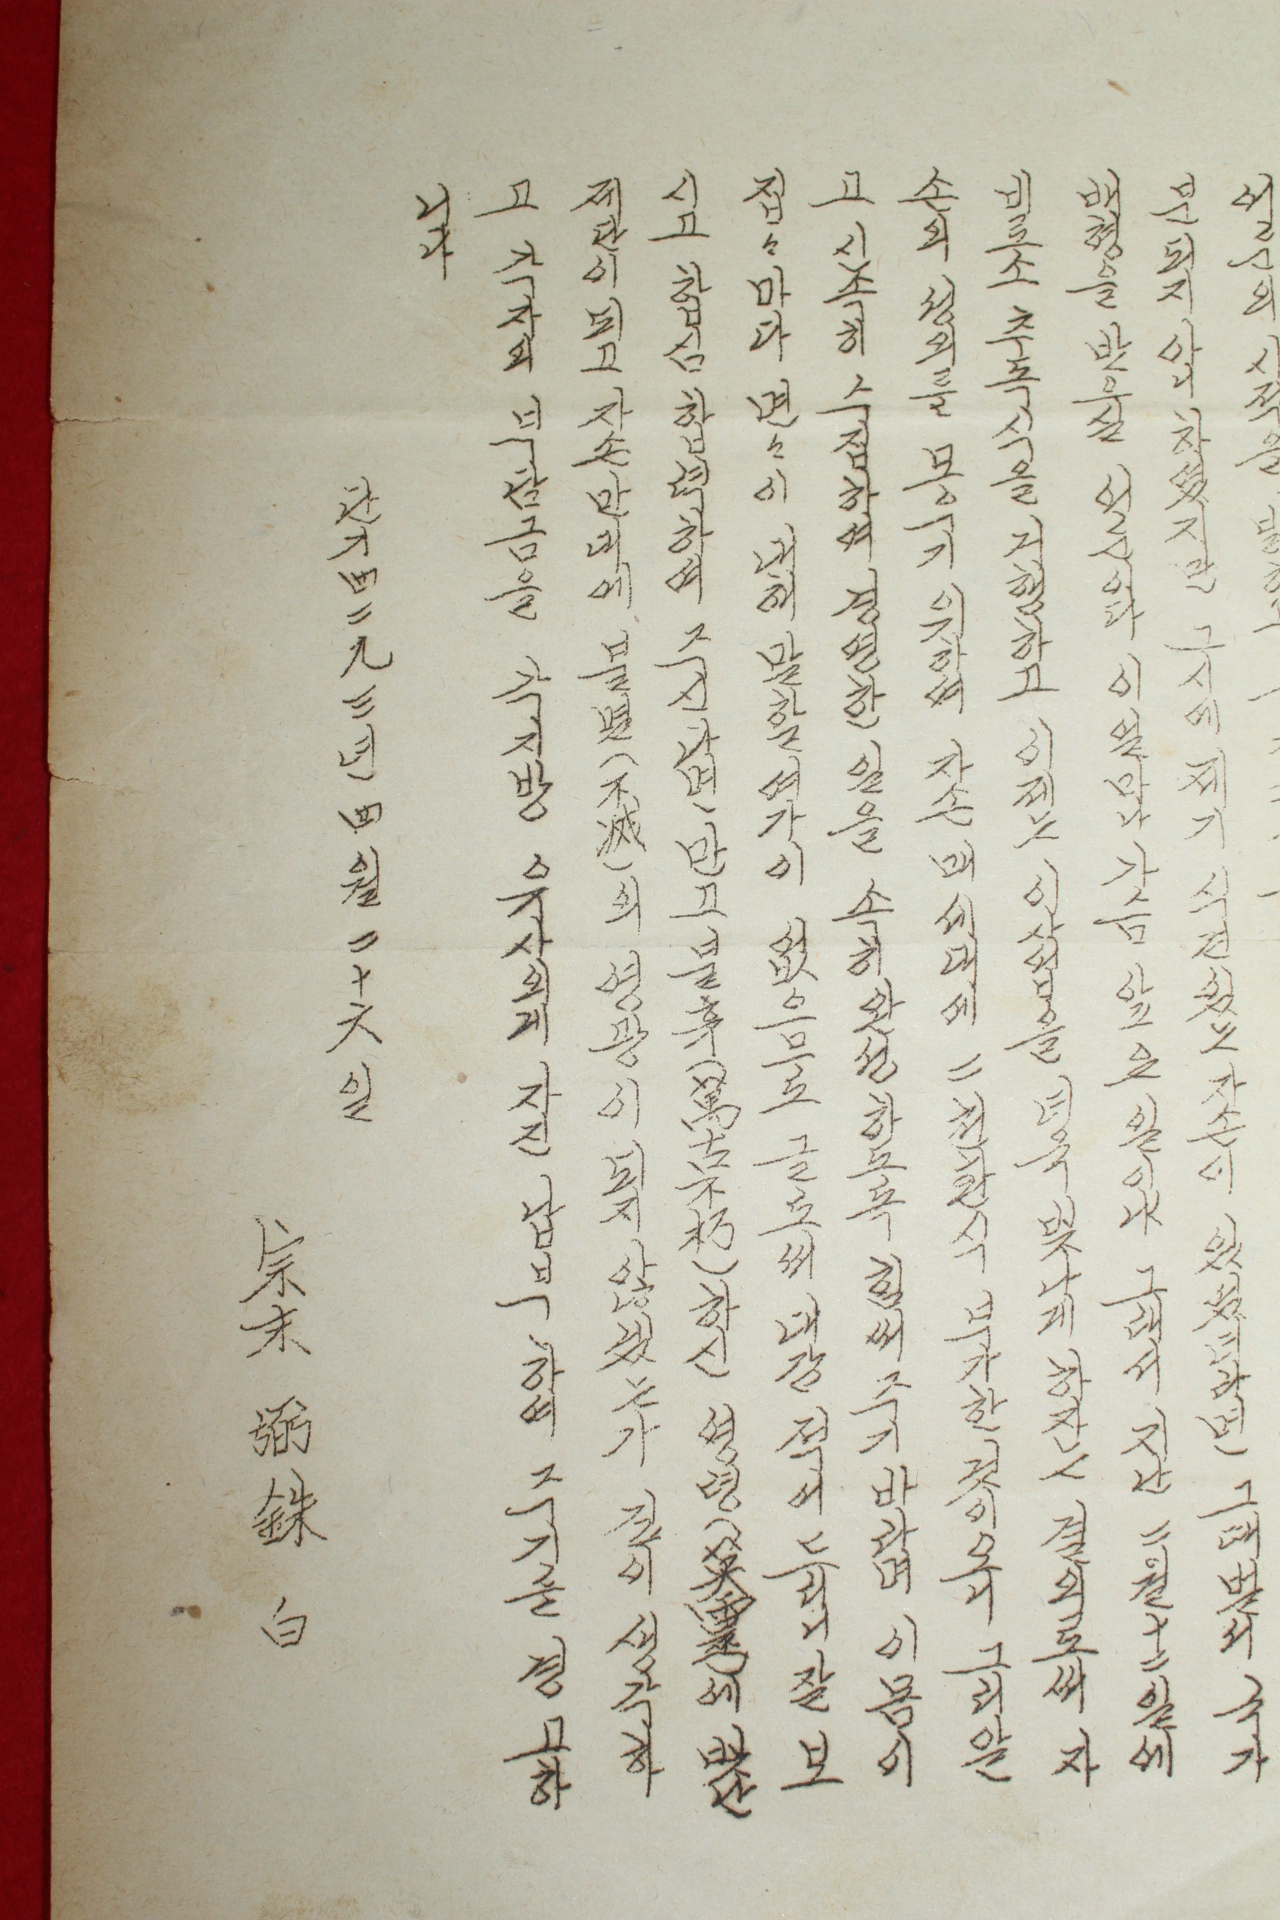 선조의 시적을
분되지 아니 하였지만 그시에 제기 식견있는 자손이 있었드라면 그대 벌서 국가
배형을 받으실 선조이다 이 얼마나 가슴 앞으 일이냐 그래서 지난 二월十二일에
비로소 추독식을 거행하고 이제는 이사업을 더욱 빛나게 하자는 결의로써 자
손의 성의를 뭉수기 위하여 자손 매세대에 二천환식 부가한 것이오니 그리알
고 신속히 수집하여 경영한 일을 속히 완성하도록 힘써 주기 바라며 이몸이
집々마다 면々이 대해 말할 여가이 없으므로 글로써 대강 적어 드리니 잘 보
시고 합심 합력하여 주신다면 만고불후(萬古不朽)하신 영령 에
제단이 되고 자손만대에 불멸(不滅)의 영광이 되지 않겠는가 깊이 생각하
고 각자의 부담금을 각지방 유사의게 자진 납부하여 주기를 경고하
니다
단기四二九三년 四월 二十六일
宗末 弼銖 白